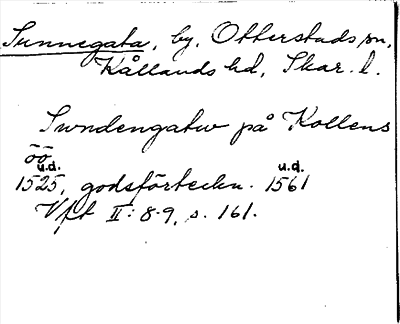 Sunnegata, by, Otterstads sn,
Kållands hd, Skar. l.
Swndengatw på Kollens
öö
u.d. u.d.
1525, godsförteckn. 1561
Vft II: 8-9, s. 161.